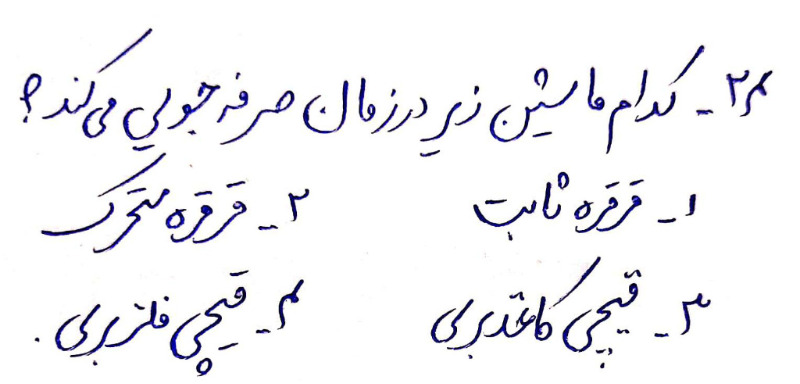 ۲۴- کدام ماشین زیر در زمان صرفه جویی می‌کند؟
۱- قرقره ثابت ۲- قرقره متحرک
۳- قیچی کاغذبری ۴- قیچی فلزبری.